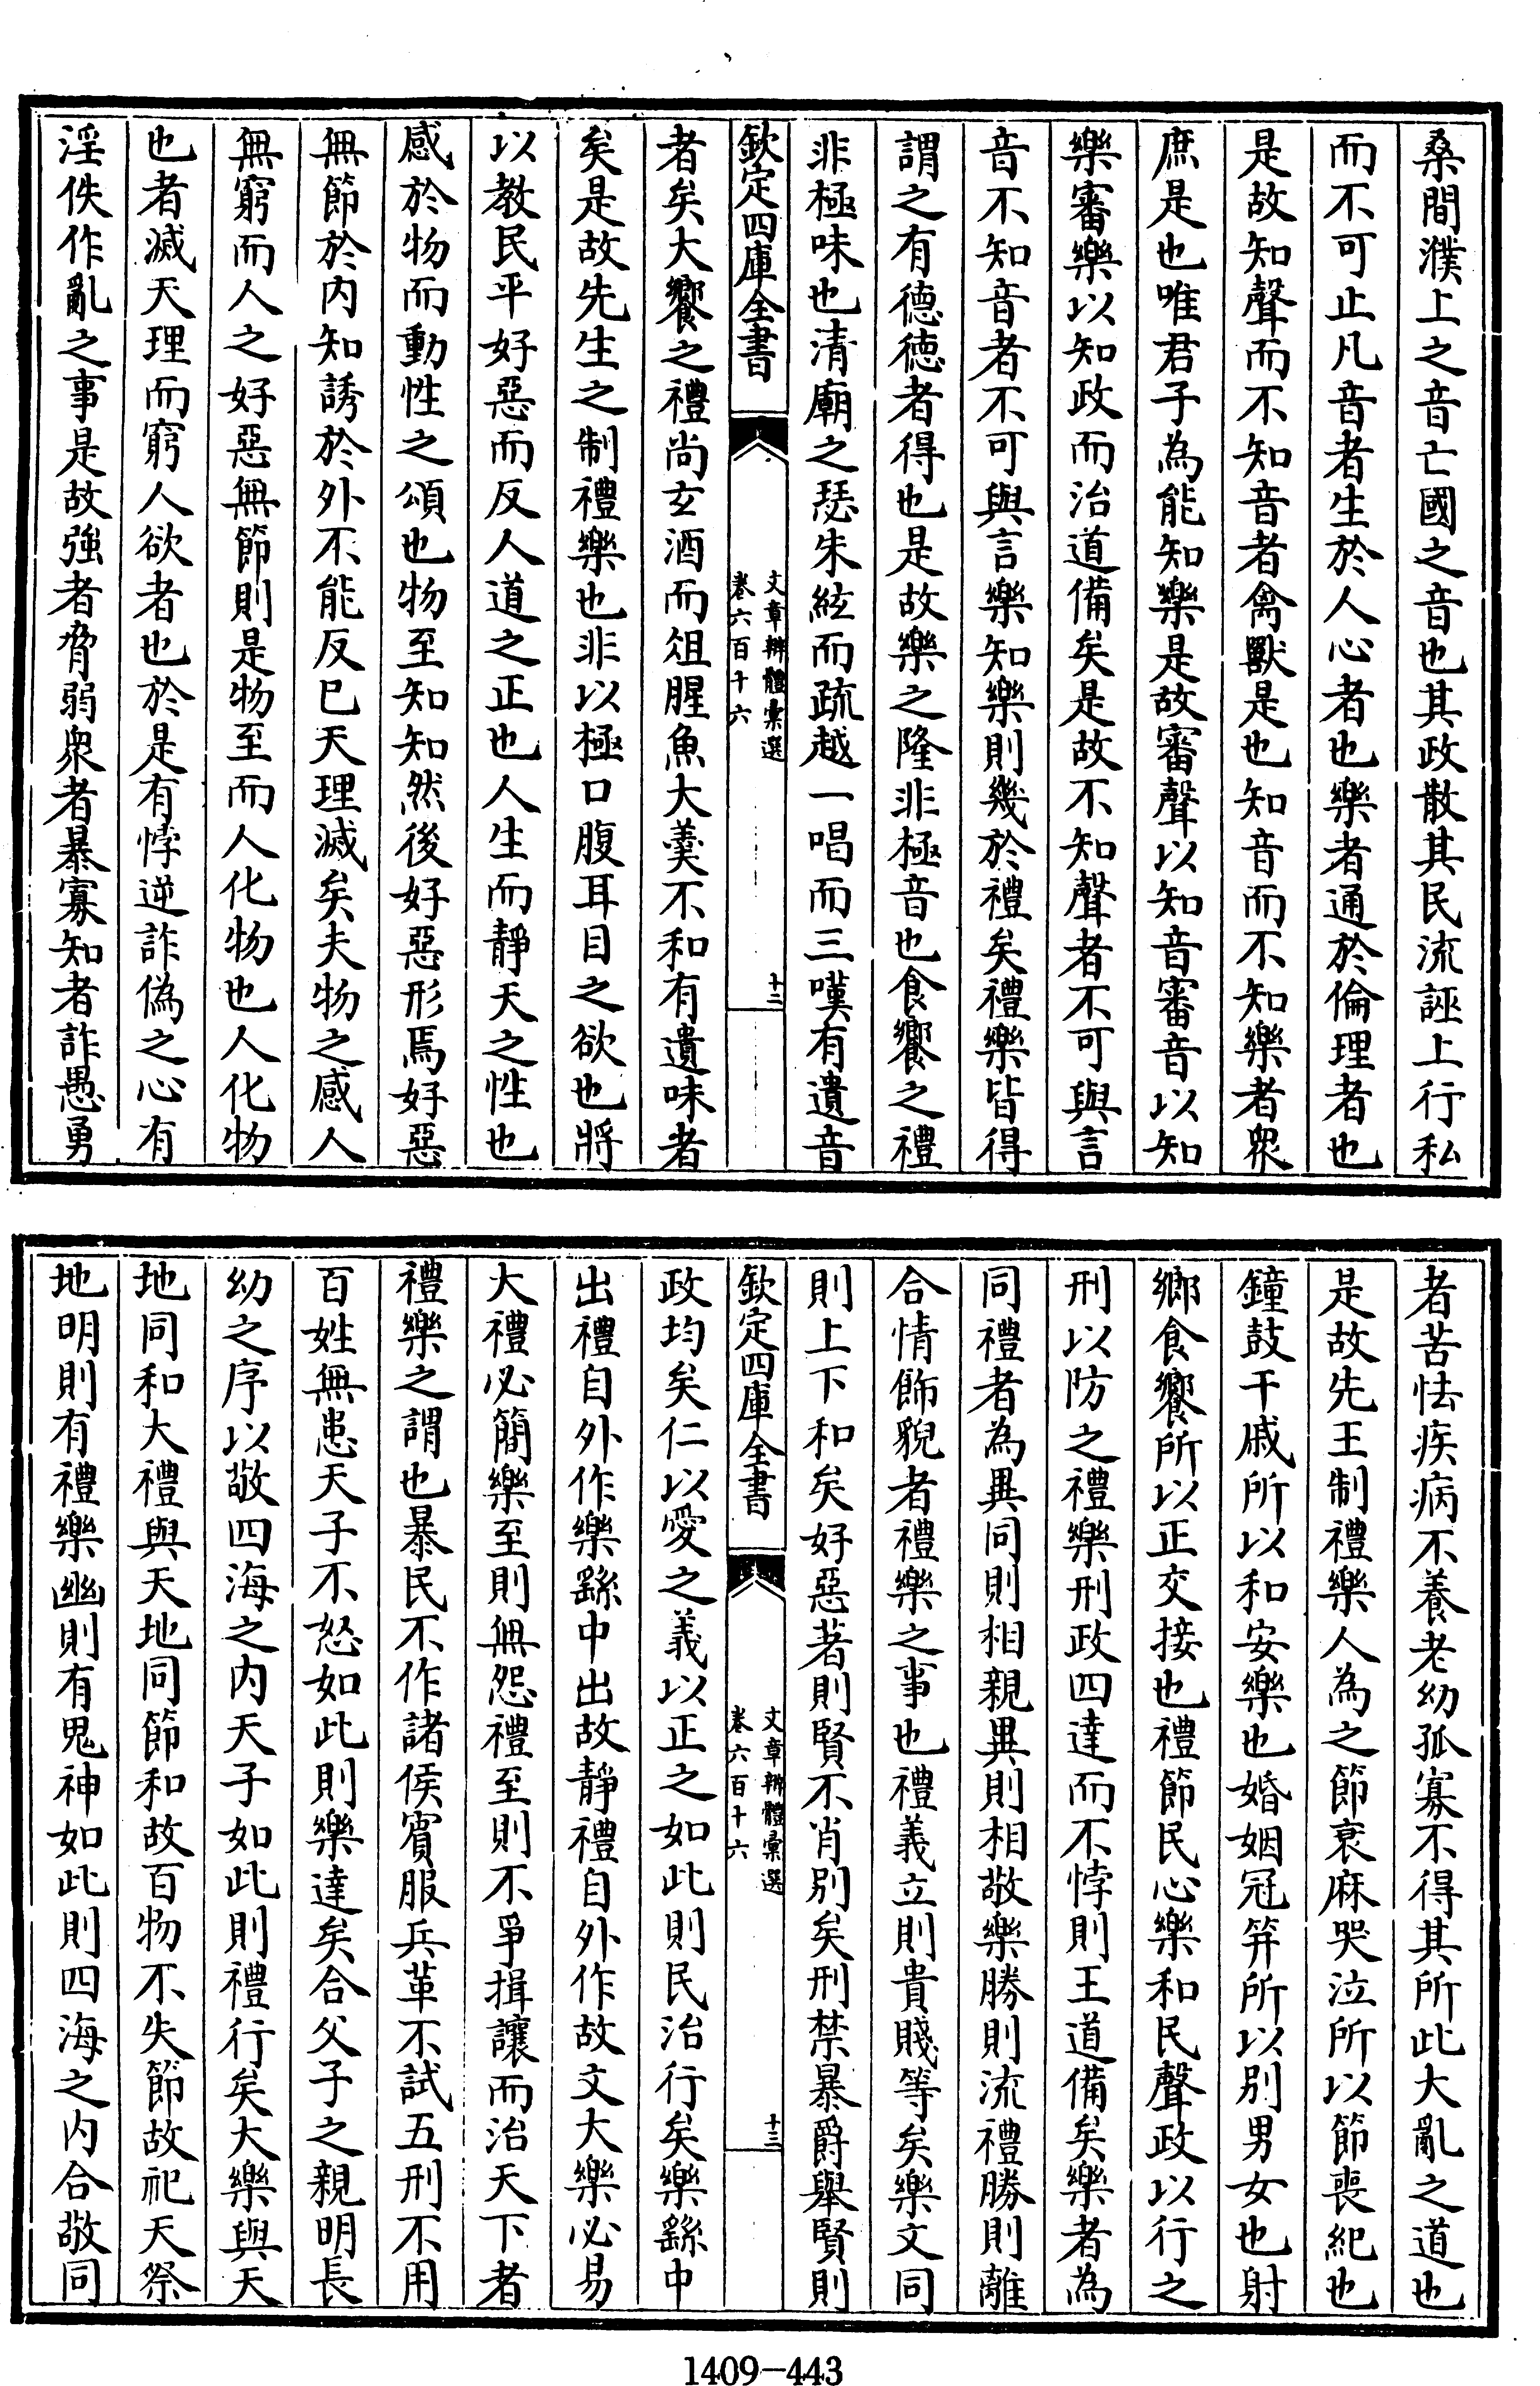 桑間濮上之音亡國之音也其政散其民流誣上行私
而不可止凡音者生於人心者也樂者通於倫理者也
是故知聲而不知音者禽獸是也知音而不知樂者衆
庶是也唯君子為能知樂是故審聲以知音審音以知
樂審樂以知政而治道備矣是故不知聲者不可與言
音不知音者不可與言樂知樂則幾於禮矣禮樂皆得
謂之有德德者得也是故樂之隆非極音也食饗之禮
非極味也清廟之瑟朱絃而疏越一唱而三嘆有遺音
欽定四庫全書
文章辨體彙選
卷六百十六
十二
者矣大饗之禮尚玄酒而俎腥魚大羹不和有遺味者
矣是故先生之制禮樂也非以極口腹耳目之欲也將
以教民平好惡而反人道之正也人生而靜天之性也
感於物而動性之頌也物至知知然後好惡形焉好惡
無節於内知誘於外不能反已天理滅矣夫物之感人
無窮而人之好惡無節則是物至而人化物也人化物
也者滅天理而窮人欲者也於是有悖逆詐偽之心有
淫佚作亂之事是故強者脅弱衆者暴寡知者詐愚勇
者苦怯疾病不養老幼孤寡不得其所此大亂之道也
是故先王制禮樂人為之節衰麻哭泣所以節喪紀也
鐘鼓干戚所以和安樂也婚姻冠笄所以別男女也射
鄉食饗所以正交接也禮節民心樂和民聲政以行之
刑以防之禮樂刑政四達而不悖則王道備矣樂者為
同禮者為異同則相親異則相敬樂勝則流禮勝則離
合情飾貌者禮樂之事也禮義立則貴賤等矣樂文同
則上下和矣好惡著則賢不肖別矣刑禁暴爵舉賢則
欽定四庫全書
文章辨體彙選
卷六百十六
十三
政均矣仁以愛之義以正之如此則民治行矣樂繇中
出禮自外作樂繇中出故靜禮自外作故文大樂必易
大禮必簡樂至則無怨禮至則不爭揖讓而治天下者
禮樂之謂也暴民不作諸侯賓服兵革不試五刑不用
百姓無患天子不怒如此則樂達矣合父子之親明長
幼之序以敬四海之内天子如此則禮行矣大樂與天
地同和大禮與天地同節和故百物不失節故祀天祭
地明則有禮樂幽則有鬼神如此則四海之内合敬同
1409-443